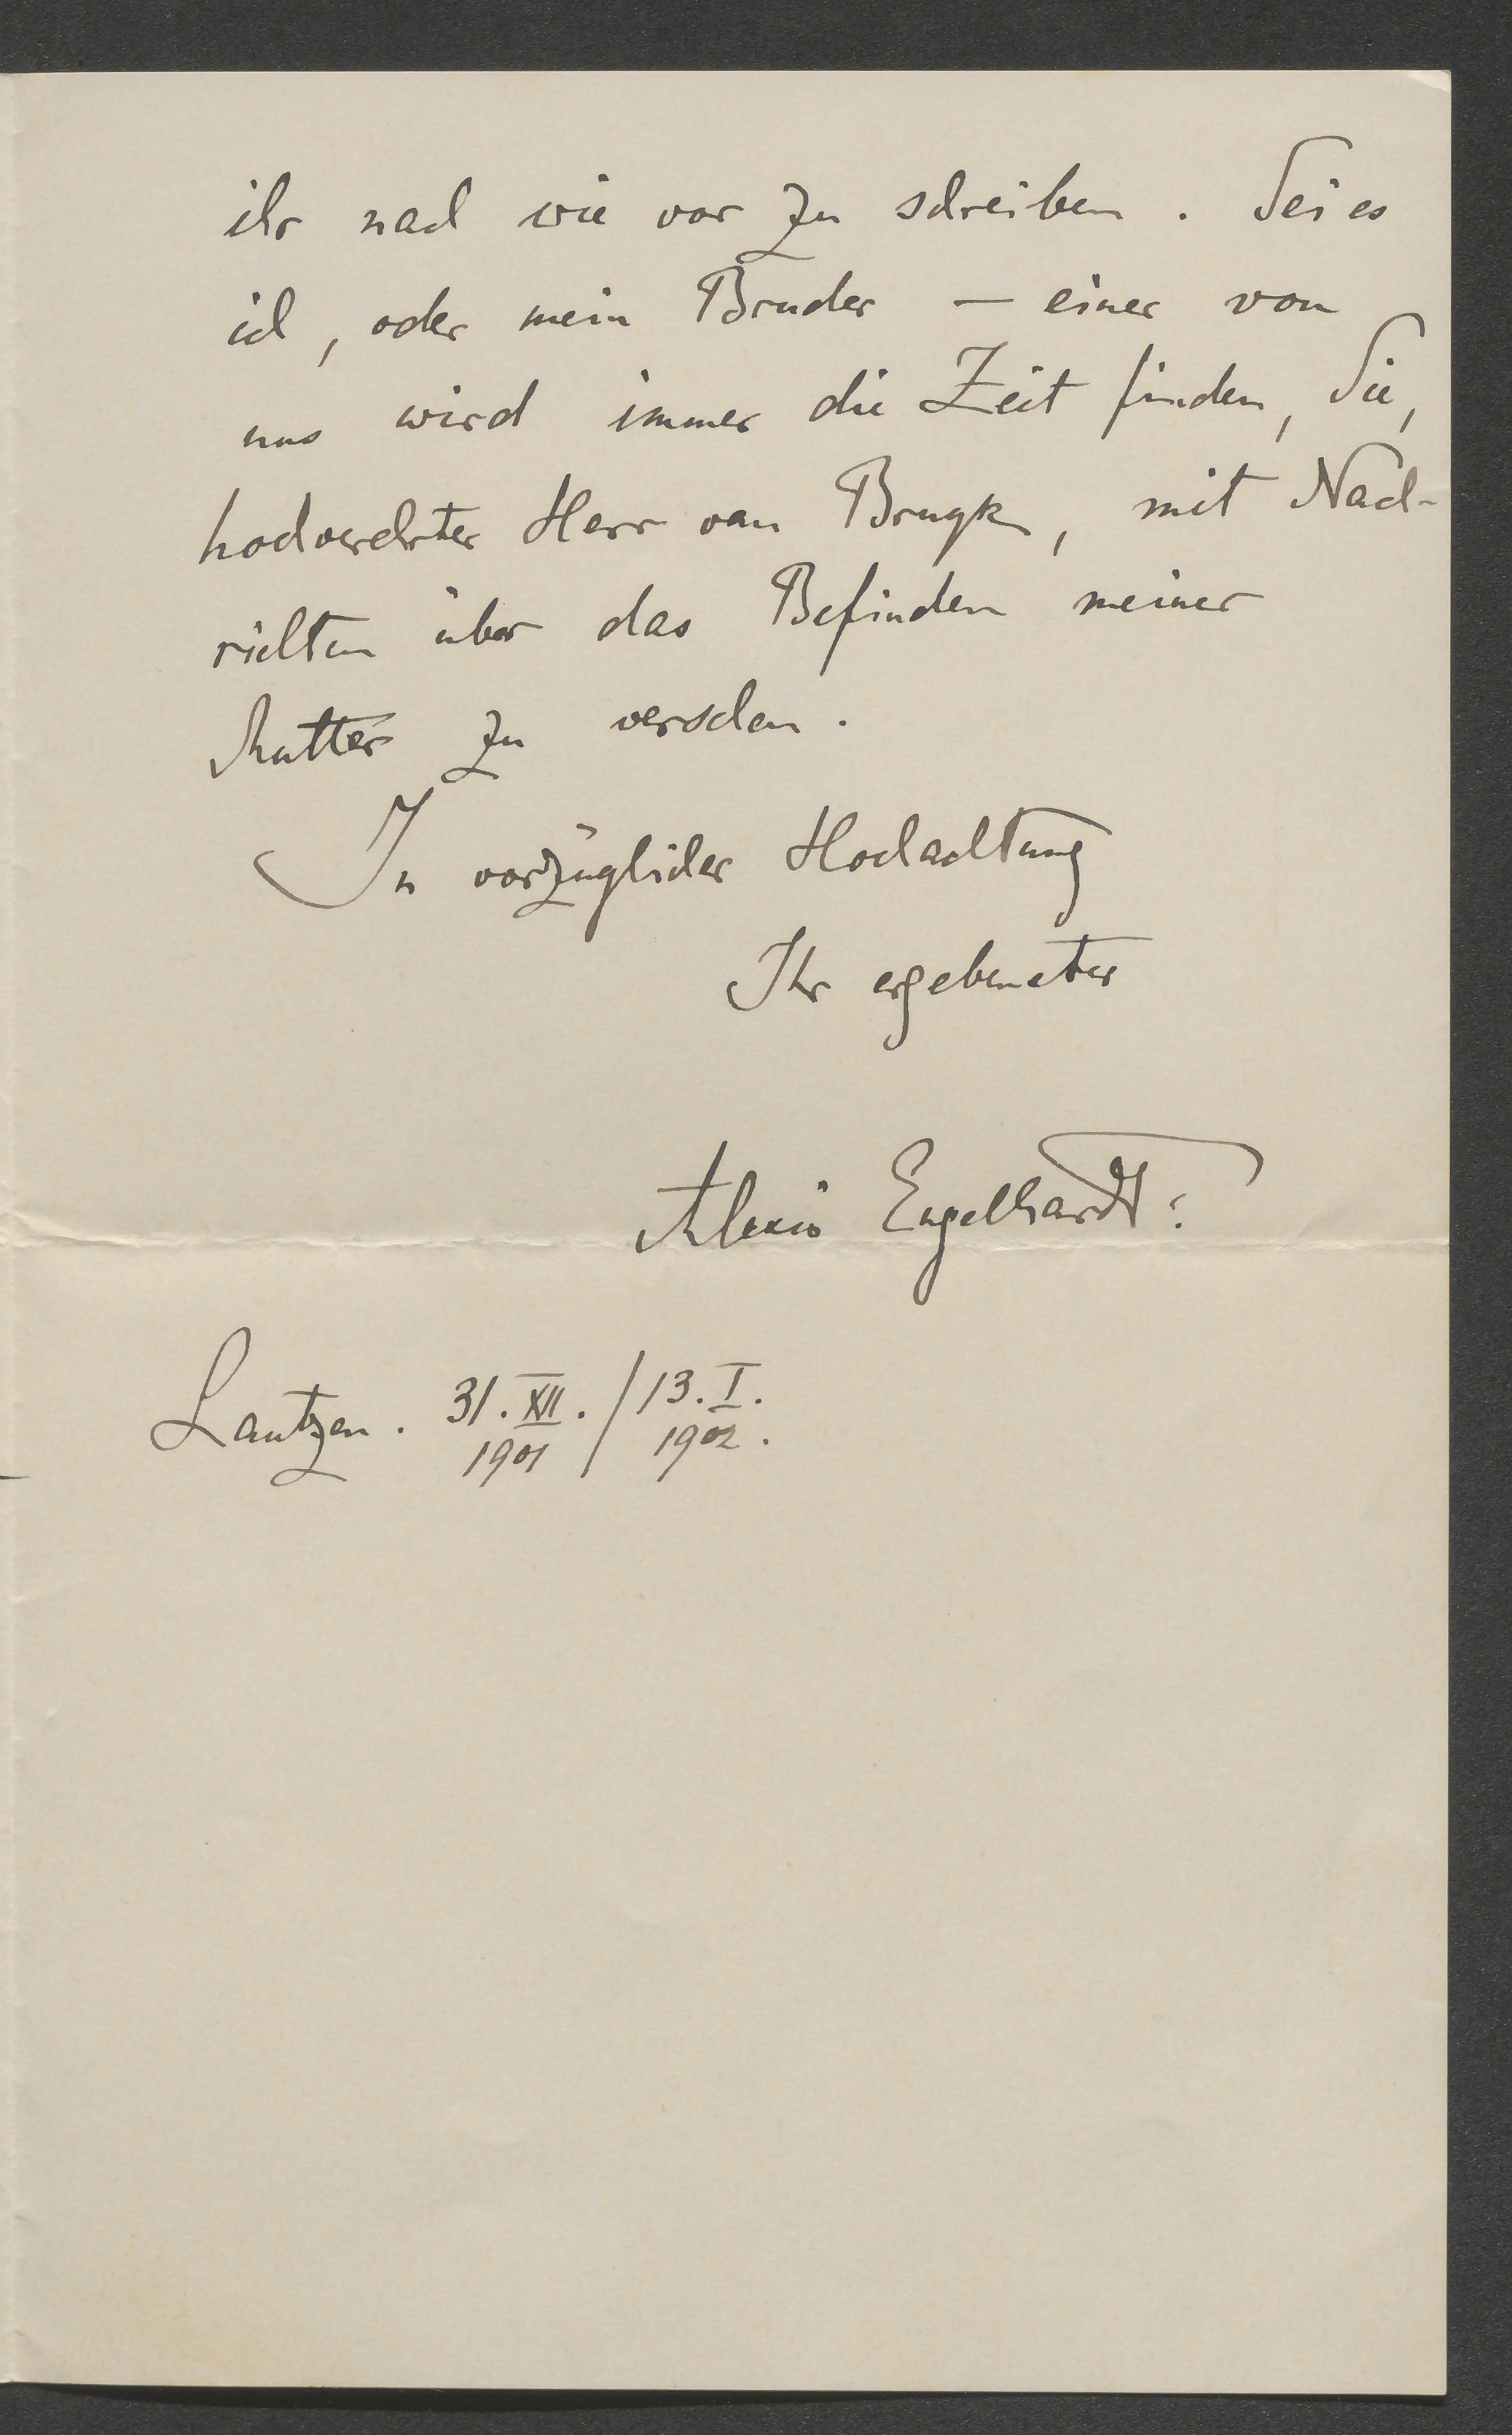 ihr nach wie vor zu schreiben. Sei es
ich, oder mein Bruder — einer von
uns wird immer die Zeit finden, Sie,
hochverehrter Herr van Bruyck, mit Nach-
richten über das Befinden meiner
Mutter zu versehen.
In vorzüglicher Hochachtung
Ihr ergebenster
Alexis Engelhardt.
Lautzen. 31.XII./13.I.
1901 / 1902.